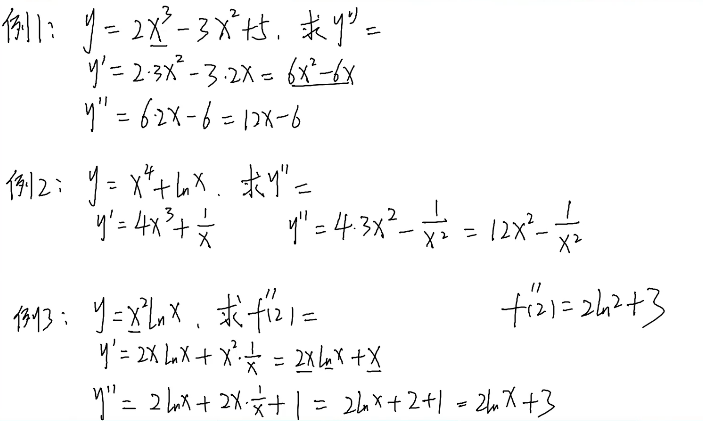 例1: y = 2x³ - 3x² + 5. 求y'' =
y' = 2·3x² - 3·2x = 6x² - 6x
y'' = 6·2x - 6 = 12x - 6
例2: y = x⁴ + ln x. 求y'' =
y' = 4x³ + 1/x    y'' = 4·3x² - 1/x² = 12x² - 1/x²
例3: y = x² ln x. 求f''(2) =    f''(2) = 2ln2 + 3
y' = 2x ln x + x²·1/x = 2x ln x + x
y'' = 2ln x + 2x·1/x + 1 = 2ln x + 2 + 1 = 2ln x + 3